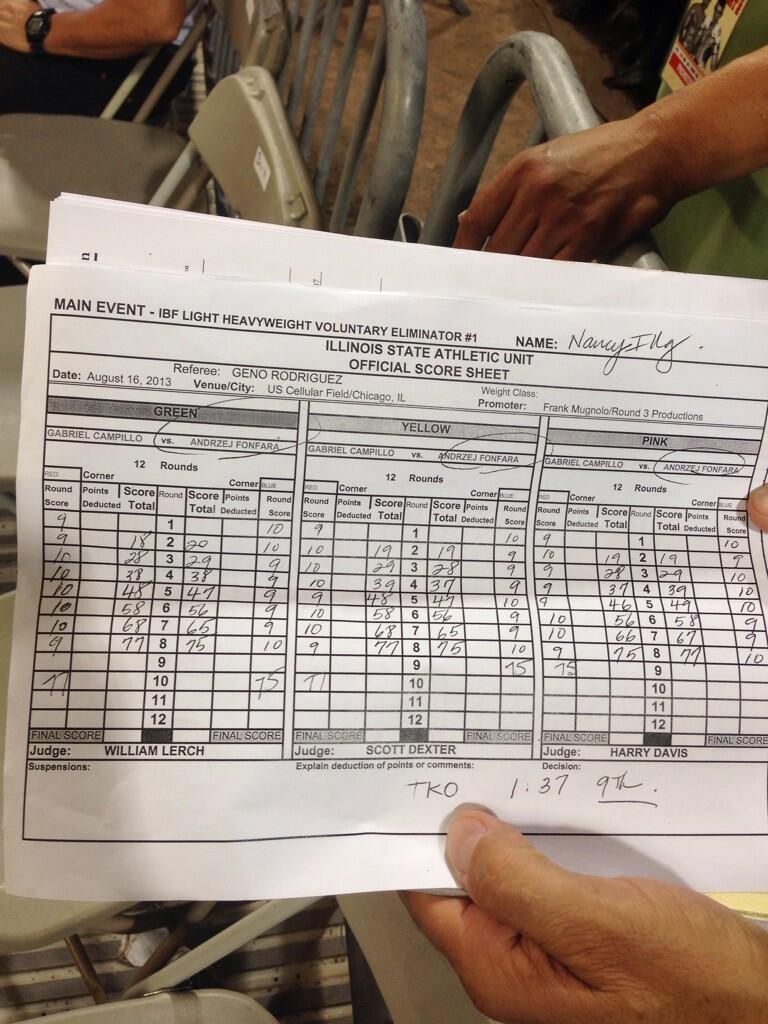 MAIN EVENT - IBF LIGHT HEAVYWEIGHT VOLUNTARY ELIMINATOR #1 NAME: Nancy Illg.
ILLINOIS STATE ATHLETIC UNIT
OFFICIAL SCORE SHEET
Referee: GENO RODRIGUEZ Weight Class:
Date: August 16, 2013 Venue/City: US Cellular Field/Chicago, IL Promoter: Frank Mugnolo/Round 3 Productions
GREEN YELLOW PINK
GABRIEL CAMPILLO vs. ANDRZEJ FONFARA GABRIEL CAMPILLO vs. ANDRZEJ FONFARA GABRIEL CAMPILLO vs. ANDRZEJ FONFARA
12 Rounds 12 Rounds 12 Rounds
RED Corner Corner BLUE RED Corner Corner BLUE RED Corner Corner BLUE
Round Score Points Deducted Score Total Round Score Total Points Deducted Round Score Round Score Points Deducted Score Total Round Score Total Points Deducted Round Score Round Score Points Deducted Score Total Round Score Total Points Deducted Round Score
9 1 10 9 1 10 9 1 10
9 18 2 20 10 10 19 2 19 9 10 19 2 19 9
10 28 3 29 9 10 29 3 28 9 9 28 3 29 10
10 38 4 38 9 10 39 4 37 9 9 37 4 39 10
10 48 5 47 9 9 48 5 47 10 9 46 5 49 10
10 58 6 56 9 10 58 6 56 9 10 56 6 58 9
10 68 7 65 9 10 68 7 65 9 10 66 7 67 9
9 77 8 75 10 9 77 8 75 10 9 75 8 77 10
9 9 75 75 9
77 10 75 77 10 10
11 11 11
12 12 12
FINAL SCORE FINAL SCORE FINAL SCORE FINAL SCORE FINAL SCORE FINAL SCORE
Judge: WILLIAM LERCH Judge: SCOTT DEXTER Judge: HARRY DAVIS
Suspensions: Explain deduction of points or comments: Decision:
TKO 1:37 9th.